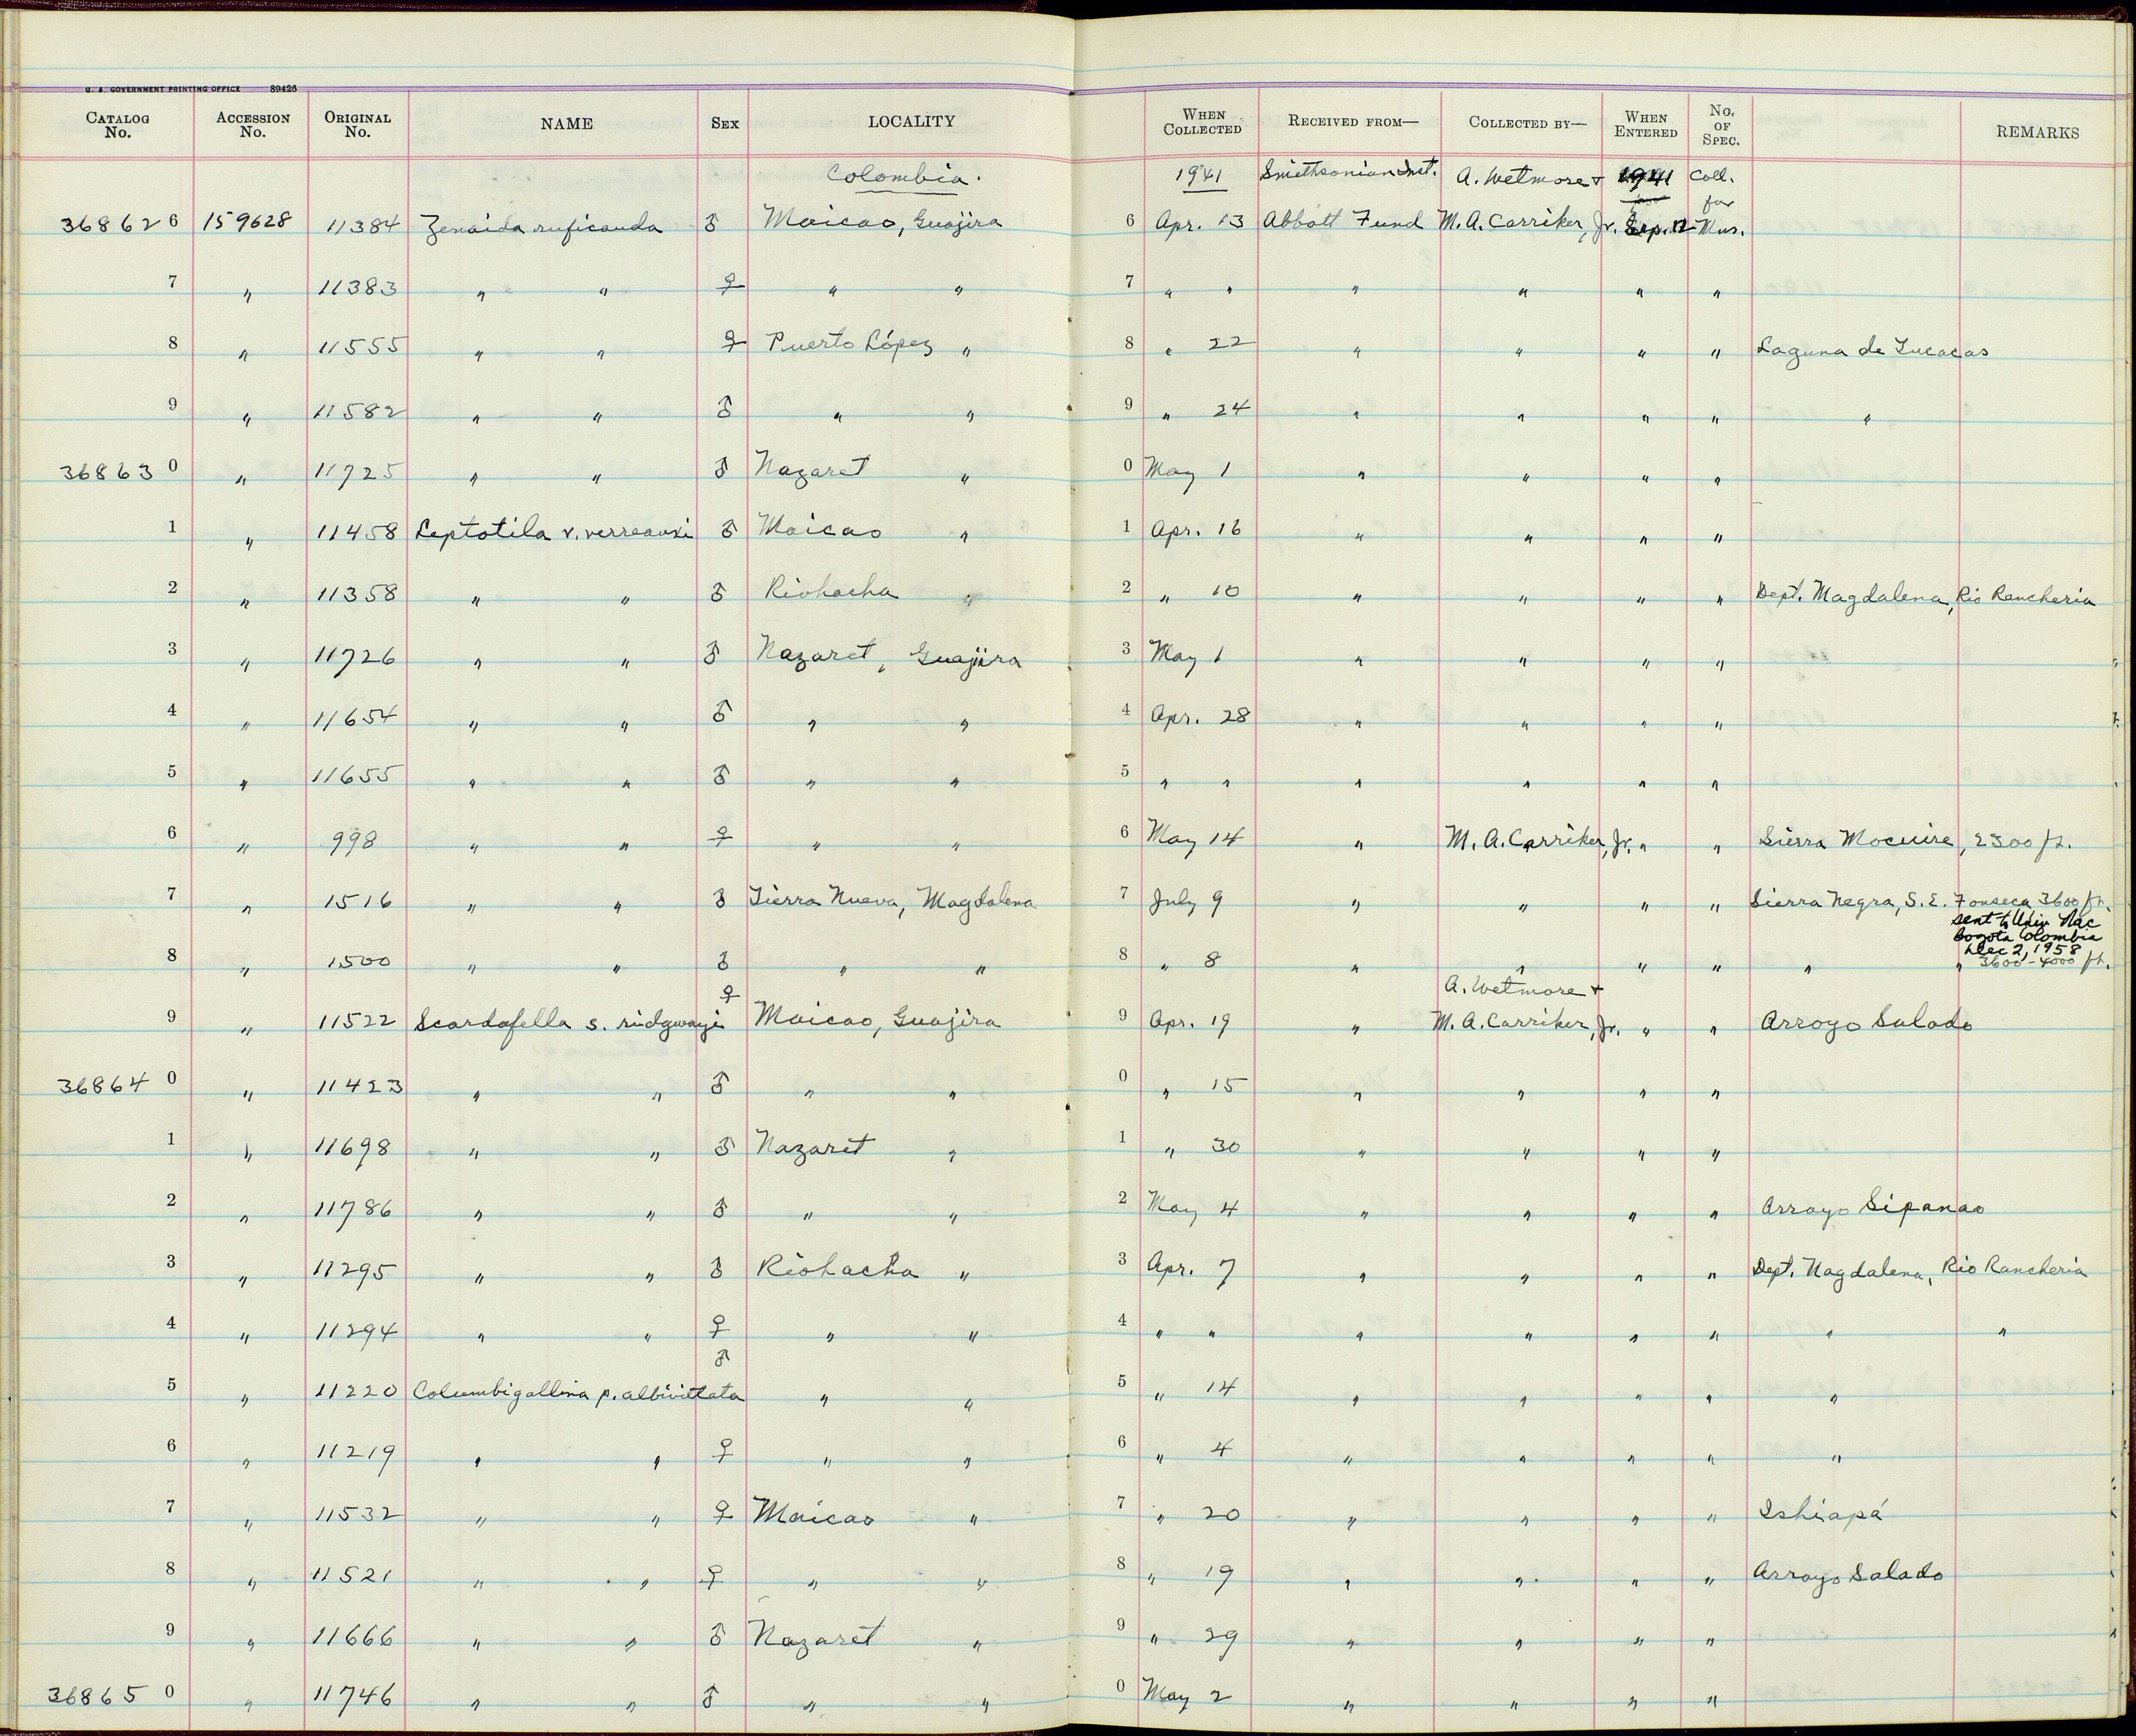 U. S. GOVERNMENT PRINTING OFFICE 89426
CATALOG No. ACCESSION No. ORIGINAL No. NAME SEX LOCALITY WHEN COLLECTED RECEIVED FROM— COLLECTED BY— WHEN ENTERED No. OF SPEC. REMARKS
Colombia. 1941 Smithsonian Inst. A. Wetmore + 1941 Coll. for
368626 159628 11384 Zenaida ruficauda ♂ Maicao, Guajira 6 Apr. 13 Abbott Fund M. A. Carriker, Jr. Sep. 12 Mus.
7 " 11383 " " ♀ " " 7 " " " " " "
8 " 11555 " " ♀ Puerto López " 8 " 22 " " " " Laguna de Tucacas
9 " 11582 " " ♂ " " 9 " 24 " " " " "
368630 " 11725 " " ♂ Nazaret " 0 May 1 " " " "
1 " 11458 Leptotila v. verreauxi ♂ Maicao " 1 Apr. 16 " " " "
2 " 11358 " " ♂ Riohacha " 2 " 10 " " " " Dept. Magdalena, Rio Rancheria
3 " 11726 " " ♂ Nazaret, Guajira 3 May 1 " " " "
4 " 11654 " " ♂ " " 4 Apr. 28 " " " "
5 " 11655 " " ♂ " " 5 " " " " " "
6 " 998 " " ♀ " " 6 May 14 " M. A. Carriker, Jr. " " Sierra Macuire, 2300 ft.
7 " 1516 " " ♂ Tierra Nueva, Magdalena 7 July 9 " " " " Sierra Negra, S. E. Fonseca, 3600 ft.
sent to Univ Nac
Bogota Colombia
Dec 2, 1958
8 " 1500 " " ♂ " " 8 " 8 " " " " " " 3600-4000 ft.
A. Wetmore +
9 " 11522 Scardafella s. ridgwayi ♀ Maicao, Guajira 9 Apr. 19 " M. A. Carriker, Jr. " " Arroyo Salado
368640 " 11423 " " ♂ " " 0 " 15 " " " "
1 " 11698 " " ♂ Nazaret " 1 " 30 " " " "
2 " 11786 " " ♂ " " 2 May 4 " " " " Arroyo Sipanao
3 " 11295 " " ♂ Riohacha " 3 Apr. 7 " " " " Dept. Magdalena, Rio Rancheria
4 " 11294 " " ♀ " " 4 " " " " " " " "
5 " 11220 Columbigallina p. albivittata ♂ " " 5 " 14 " " " " "
6 " 11219 " " ♀ " " 6 " 4 " " " " "
7 " 11532 " " ♀ Maicao " 7 " 20 " " " " Ishiapá
8 " 11521 " " ♀ " " 8 " 19 " " " " Arroyo Salado
9 " 11666 " " ♂ Nazaret " 9 " 29 " " " "
368650 " 11746 " " ♂ " " 0 May 2 " " " "